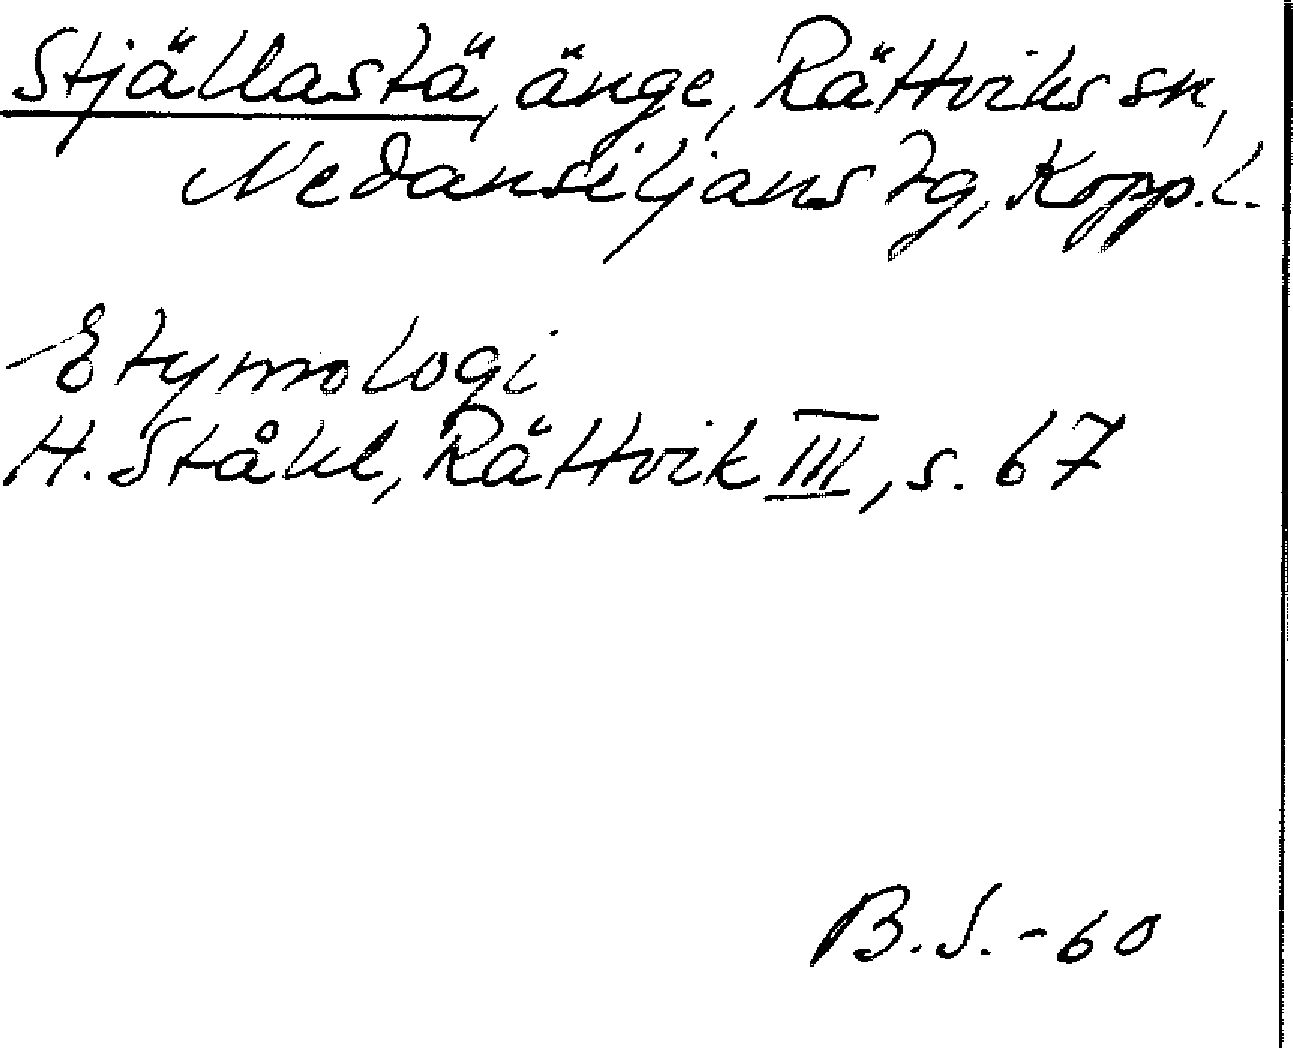 Stjällastä, änge, Rättviks sn,
Nedansiljans tg, Kopp.l.
Etymologi
H. Ståhl, Rättvik III, s. 67
B.S.-60